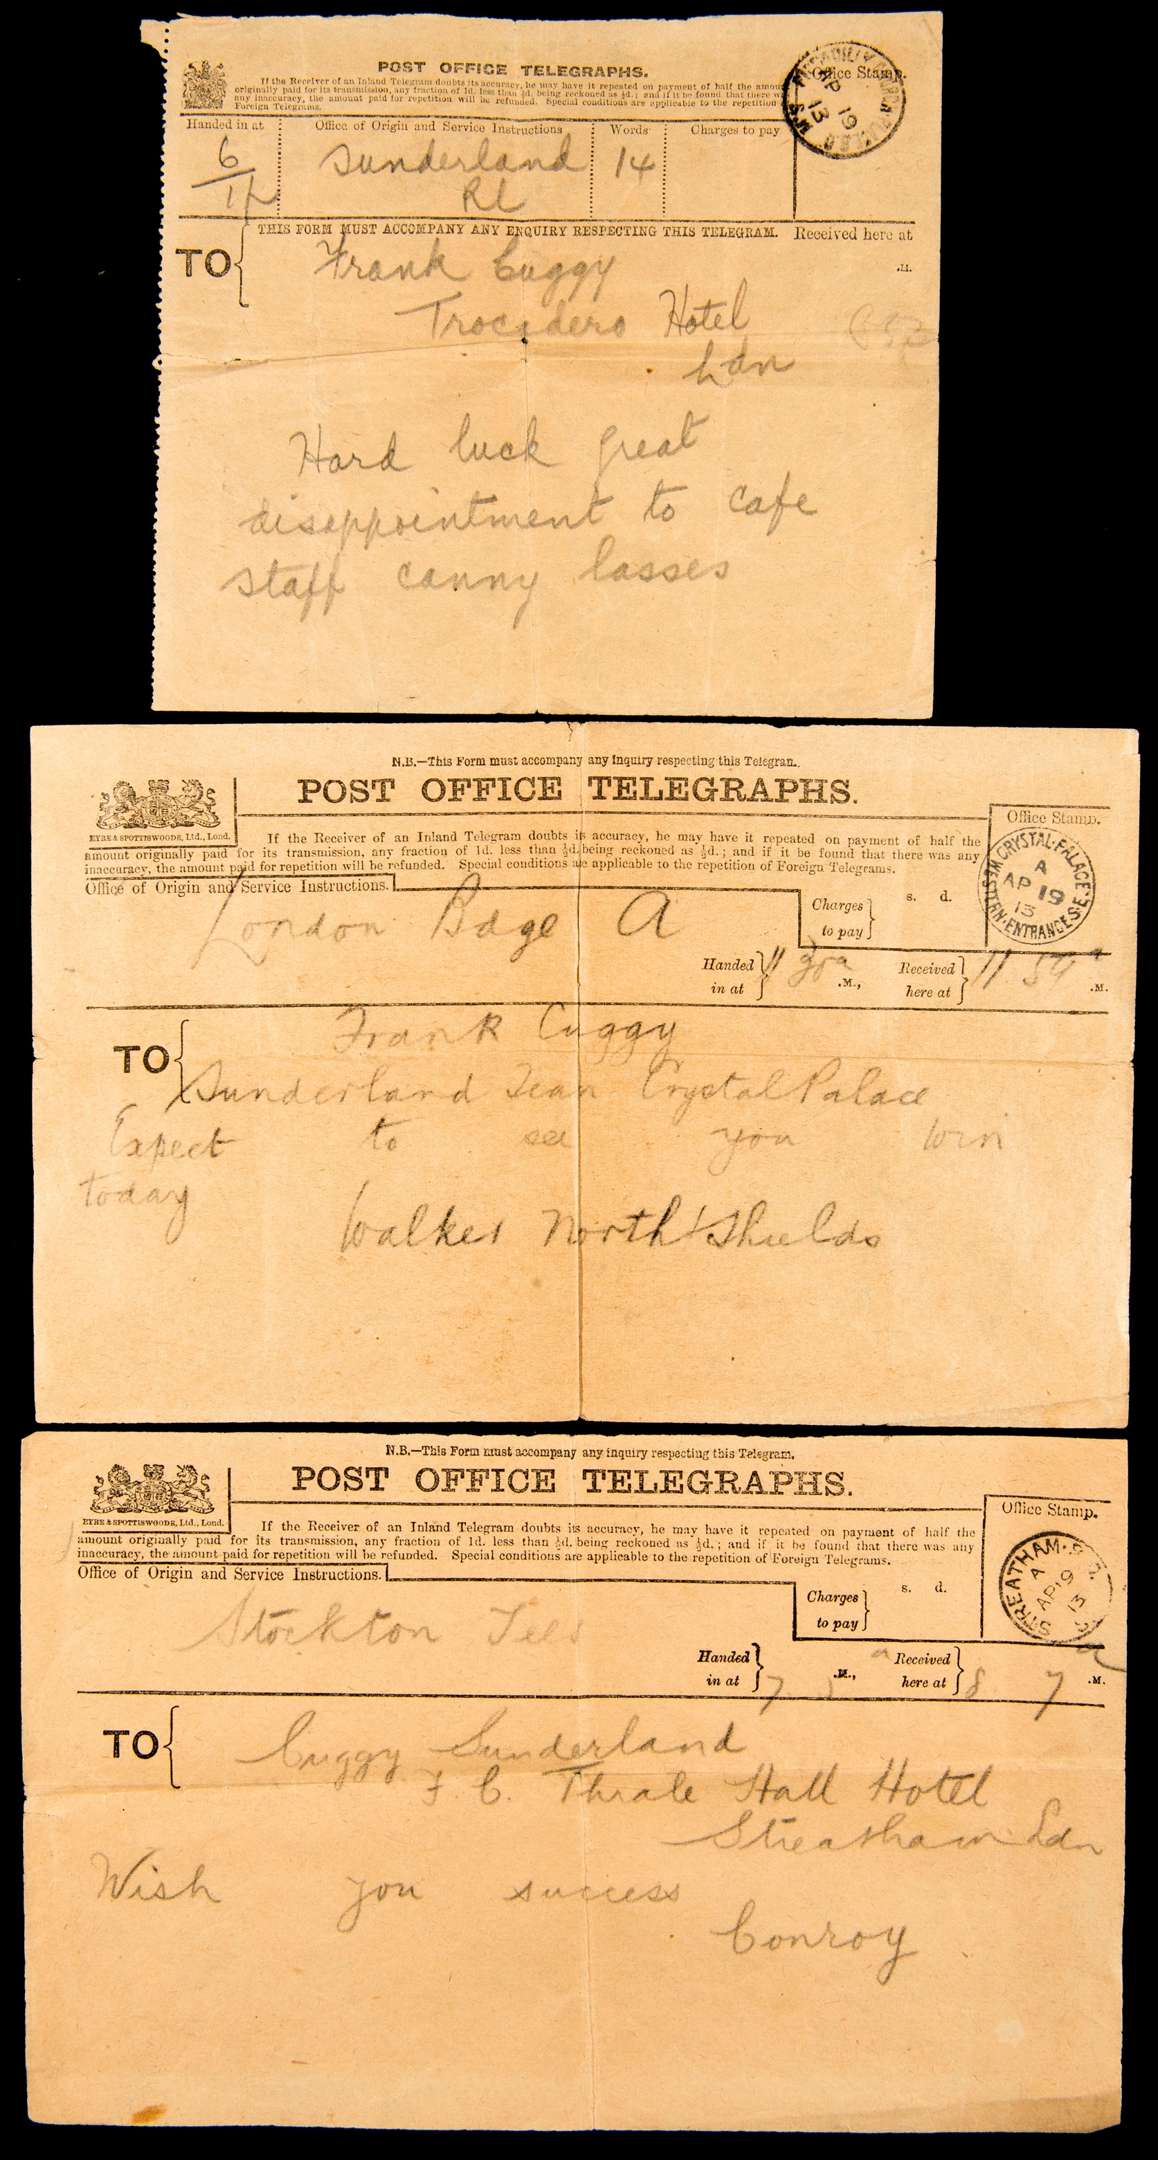 POST OFFICE TELEGRAPHS.
If the Receiver of an Inland Telegram doubts its accuracy, he may have it repeated on payment of half the amount
originally paid for its transmission, any fraction of 1d. less than ½d. being reckoned as ½d.; and if it be found that there was
any inaccuracy, the amount paid for repetition will be refunded. Special conditions are applicable to the repetition
Foreign Telegrams.
Office Stamp.
AP 19
13
Handed in at
Office of Origin and Service Instructions
Words
Charges to pay
6
Sunderland
14
Rl
THIS FORM MUST ACCOMPANY ANY ENQUIRY RESPECTING THIS TELEGRAM. Received here at
TO
Frank Cuggy
.M.
Trocadero Hotel
Ldn
Hard luck great
disappointment to cafe
staff canny lasses
N.B.—This Form must accompany any Inquiry respecting this Telegram.
POST OFFICE TELEGRAPHS.
EYRE & SPOTTISWOODE, Ltd., Lond.
If the Receiver of an Inland Telegram doubts its accuracy, he may have it repeated on payment of half the
amount originally paid for its transmission, any fraction of 1d. less than ½d. being reckoned as ½d.; and if it be found that there was any
inaccuracy, the amount paid for repetition will be refunded. Special conditions are applicable to the repetition of Foreign Telegrams.
Office Stamp.
CRYSTAL·PALACE·S.E.
WESTERN·ENTRANCE
A
AP 19
13
Office of Origin and Service Instructions.
London Bdge A
Charges to pay
s. d.
Handed in at 11 .M.,
Received here at 11 59 a .M.
TO
Frank Cuggy
Sunderland Team Crystal Palace
Expect to see you win
today
Walker North Shields
N.B.—This Form must accompany any inquiry respecting this Telegram.
POST OFFICE TELEGRAPHS.
EYRE & SPOTTISWOODE, Ltd., Lond.
If the Receiver of an Inland Telegram doubts its accuracy, he may have it repeated on payment of half the
amount originally paid for its transmission, any fraction of 1d. less than ½d. being reckoned as ½d.; and if it be found that there was any
inaccuracy, the amount paid for repetition will be refunded. Special conditions are applicable to the repetition of Foreign Telegrams.
Office Stamp.
STREATHAM
A
AP 19
13
Office of Origin and Service Instructions.
Stockton Tees
Charges to pay
s. d.
Handed in at 7 .M.,
Received here at 8 7 a .M.
TO
Cuggy Sunderland
F. C. Thrale Hall Hotel
Streatham Ldn
Wish you success
Conroy